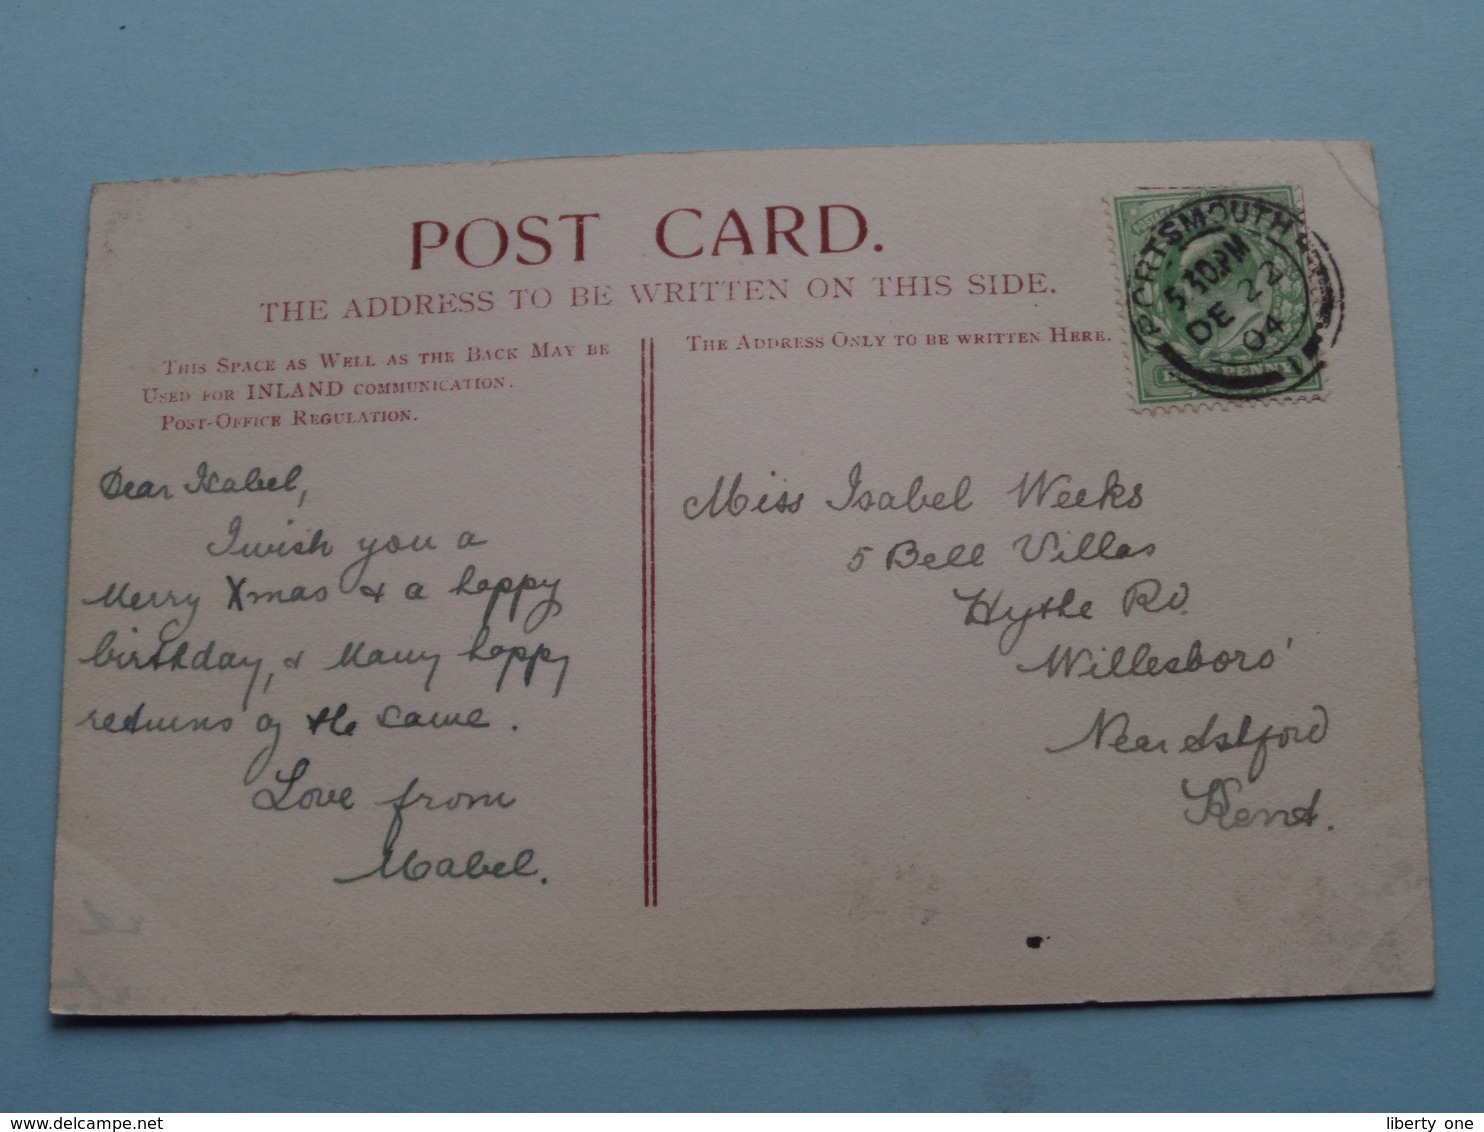 POST CARD.
THE ADDRESS TO BE WRITTEN ON THIS SIDE.
THIS SPACE AS WELL AS THE BACK MAY BE
USED FOR INLAND COMMUNICATION.
POST-OFFICE REGULATION.
THE ADDRESS ONLY TO BE WRITTEN HERE.
PORTSMOUTH
5 30PM
DE 22
04
1
Dear Isabel,
I wish you a
Merry Xmas & a happy
birthday, & Many happy
returns of the same.
Love from
Mabel.
Miss Isabel Weeks
5 Bell Villas
Hythe Rd.
Willesboro'
Near Ashford
Kent.
delcampe.net
liberty one